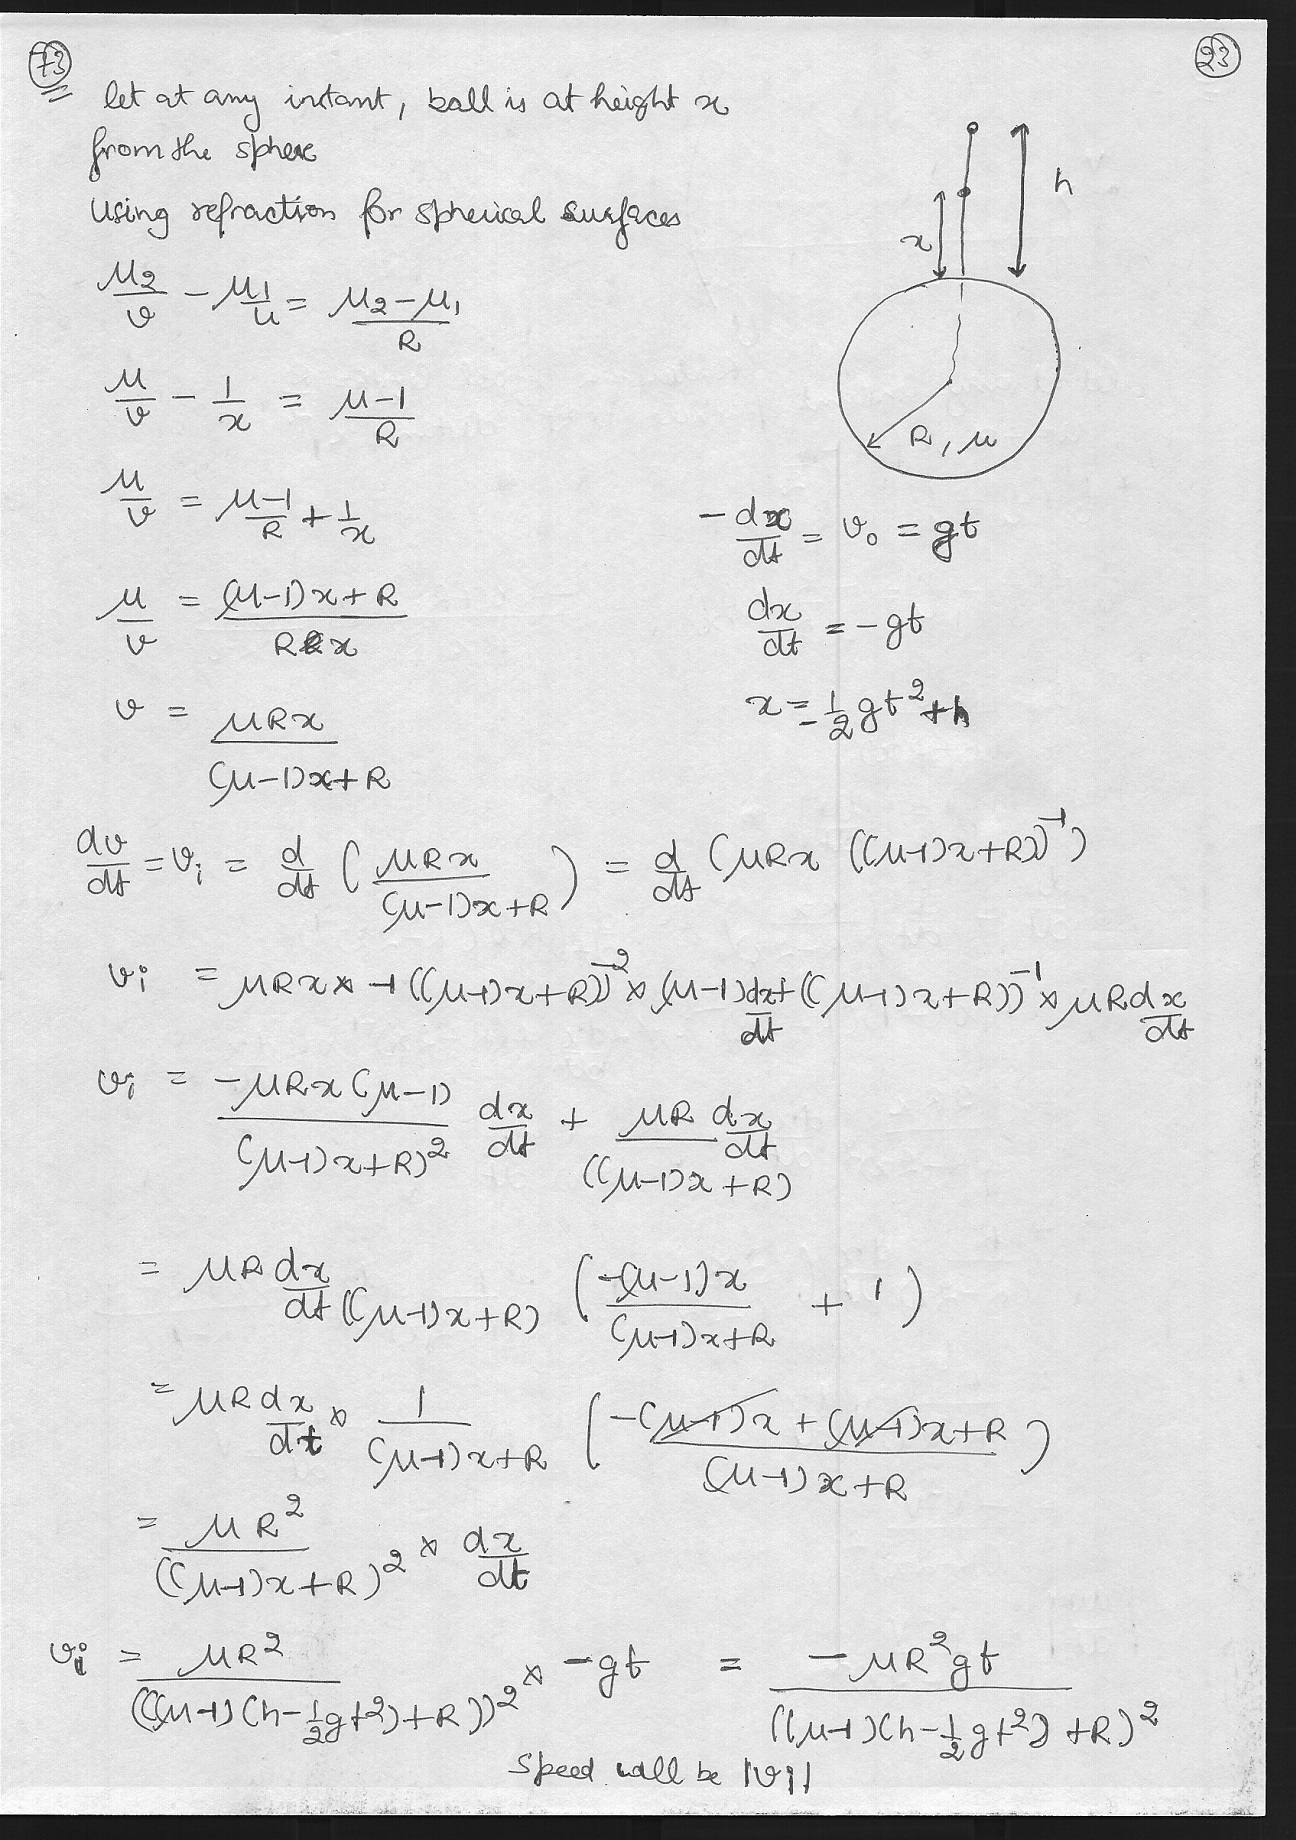 73
23
let at any instant, ball is at height x
from the sphere
using refraction for spherical surfaces
h
x
R, μ
μ2/v - μ1/u = (μ2-μ1)/R
μ/v - 1/x = (μ-1)/R
μ/v = (μ-1)/R + 1/x
μ/v = ((μ-1)x+R)/(R x)
v = μRx/((μ-1)x+R)
-dx/dt = v₀ = gt
dx/dt = -gt
x = -1/2 gt² + h
dv/dt = vi = d/dt (μRx/((μ-1)x+R)) = d/dt (μRx ((μ-1)x+R))⁻¹)
vi = μRx × -1 ((μ-1)x+R))⁻² × (μ-1)dx/dt + ((μ-1)x+R))⁻¹ × μR dx/dt
vi = -μRx(μ-1)/((μ-1)x+R)² dx/dt + μR/((μ-1)x+R) dx/dt
= μR dx/dt ((μ-1)x+R) (-(μ-1)x/((μ-1)x+R) + 1)
= μR dx/dt × 1/((μ-1)x+R) ((-(μ-1)x + (μ-1)x+R)/((μ-1)x+R))
= μR²/((μ-1)x+R)² × dx/dt
vi = μR²/(((μ-1)(h-1/2gt²)+R))² × -gt = -μR²gt/((μ-1)(h-1/2gt²)+R)²
speed will be |vi|